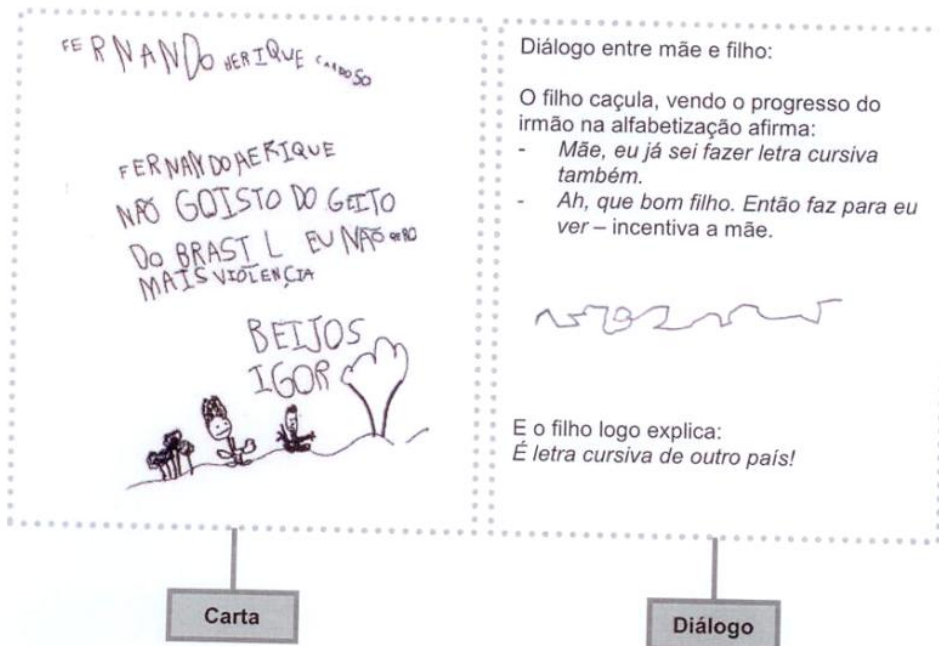 FERNANDO HERIQUE CARDOSO
FERNANDO HERIQUE
NÃO GOISTO DO GEITO
DO BRASIL EU NÃO QERO
MAIS VIOLENÇIA
BEIJOS
IGOR
Carta
Diálogo entre mãe e filho:
O filho caçula, vendo o progresso do
irmão na alfabetização afirma:
- Mãe, eu já sei fazer letra cursiva
também.
- Ah, que bom filho. Então faz para eu
ver – incentiva a mãe.
E o filho logo explica:
É letra cursiva de outro país!
Diálogo